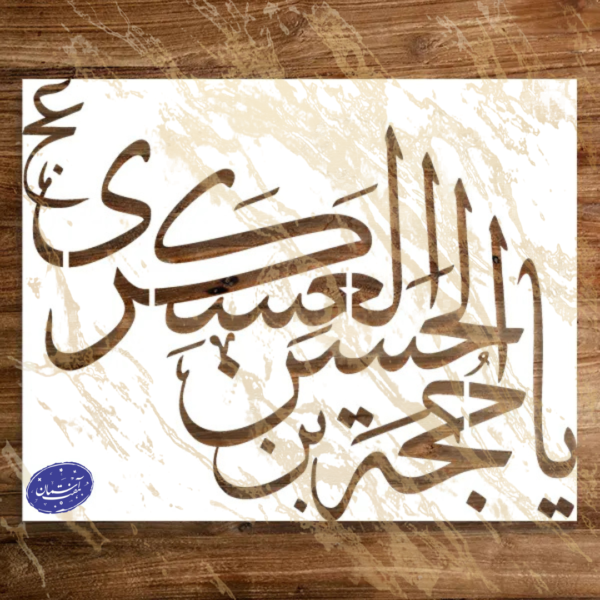 یا حجة بن
الحسن
العسکری
عج